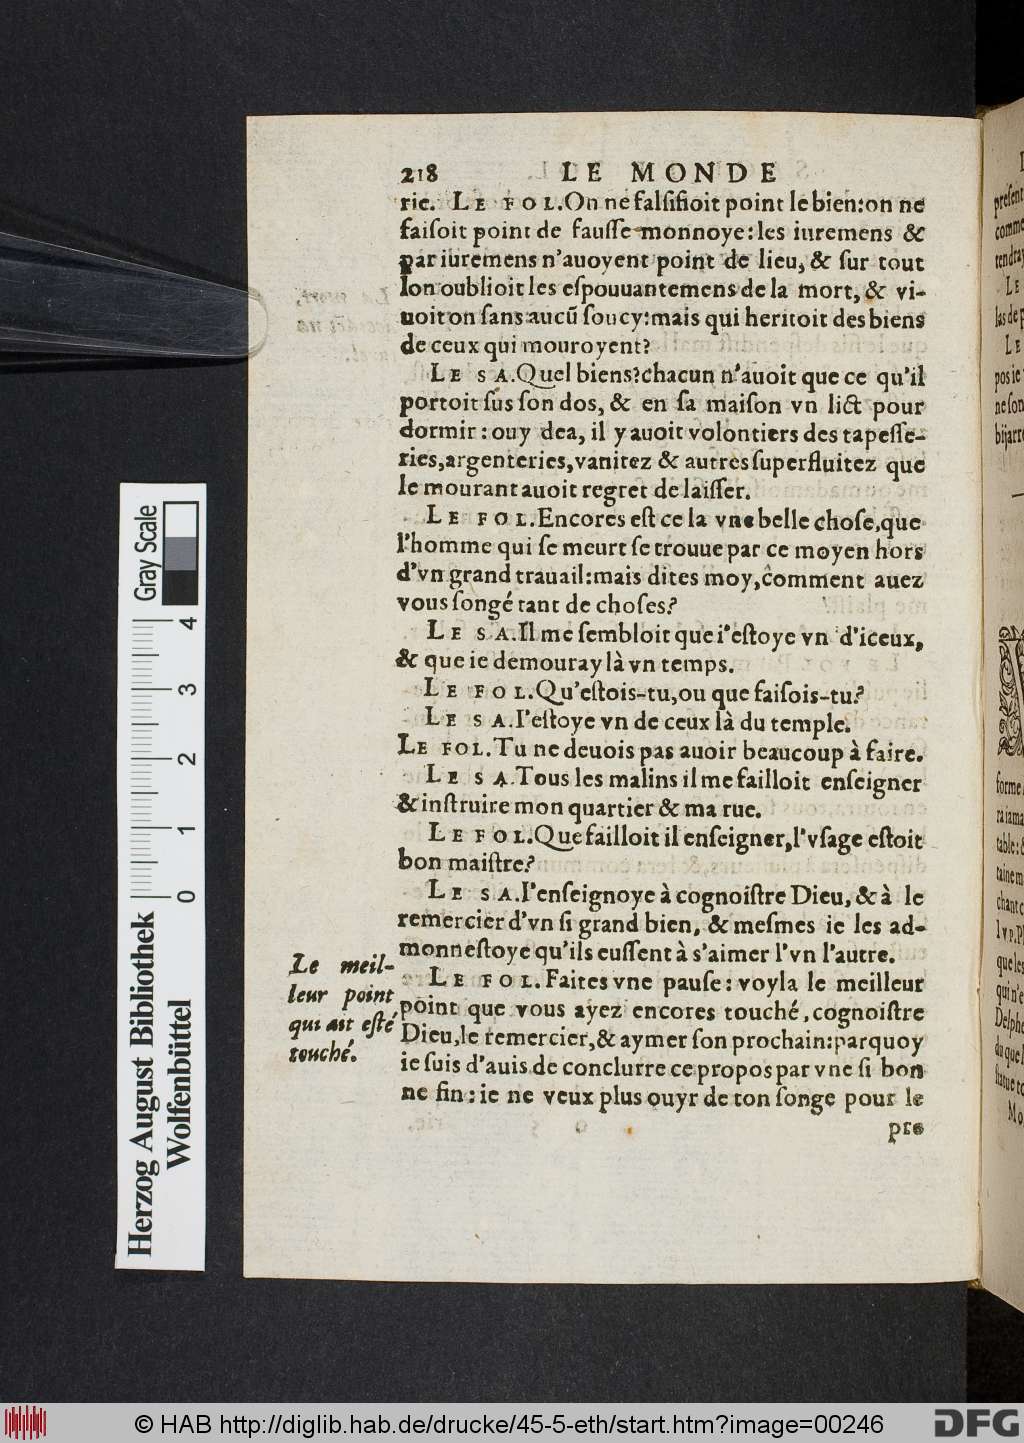 218 LE MONDE
rie. LE FOL. On ne falſifioit point le bien: on ne
faiſoit point de fauſſe monnoye: les iuremens &
pariuremens n'auoyent point de lieu, & ſur tout
lon oublioit les eſpouuantemens de la mort, & vi-
uoit on ſans aucũ ſoucy: mais qui heritoit des biens
de ceux qui mouroyent?
LE SA. Quel biens? chacun n'auoit que ce qu'il
portoit ſus ſon dos, & en ſa maiſon vn lict pour
dormir: ouy dea, il y auoit volontiers des tapeſſe-
ries, argenteries, vanitez & autres ſuperfluitez que
le mourant auoit regret de laiſſer.
LE FOL. Encores eſt ce la vne belle choſe, que
l'homme qui ſe meurt ſe trouue par ce moyen hors
d'vn grand trauail: mais dites moy, comment auez
vous ſongé tant de choſes?
LE SA. Il me ſembloit que i'eſtoye vn d'iceux,
& que ie demouray là vn temps.
LE FOL. Qu'eſtois-tu, ou que faiſois-tu?
LE SA. I'eſtoye vn de ceux là du temple.
LE FOL. Tu ne deuois pas auoir beaucoup à faire.
LE SA. Tous les malins il me failloit enſeigner
& inſtruire mon quartier & ma rue.
LE FOL. Que failloit il enſeigner, l'vſage eſtoit
bon maiſtre?
LE SA. I'enſeignoye à cognoiſtre Dieu, & à le
remercier d'vn ſi grand bien, & meſmes ie les ad-
monneſtoye qu'ils euſſent à s'aimer l'vn l'autre.
LE FOL. Faites vne pauſe: voyla le meilleur
point que vous ayez encores touché, cognoiſtre
Dieu, le remercier, & aymer ſon prochain: parquoy
ie ſuis d'auis de conclurre ce propos par vne ſi bon
ne fin: ie ne veux plus ouyr de ton ſonge pour le
pre
Le meil-
leur point
qui ait eſté
touché.
Gray Scale
0 1 2 3 4
Herzog August Bibliothek
Wolfenbüttel
© HAB http://diglib.hab.de/drucke/45-5-eth/start.htm?image=00246
DFG